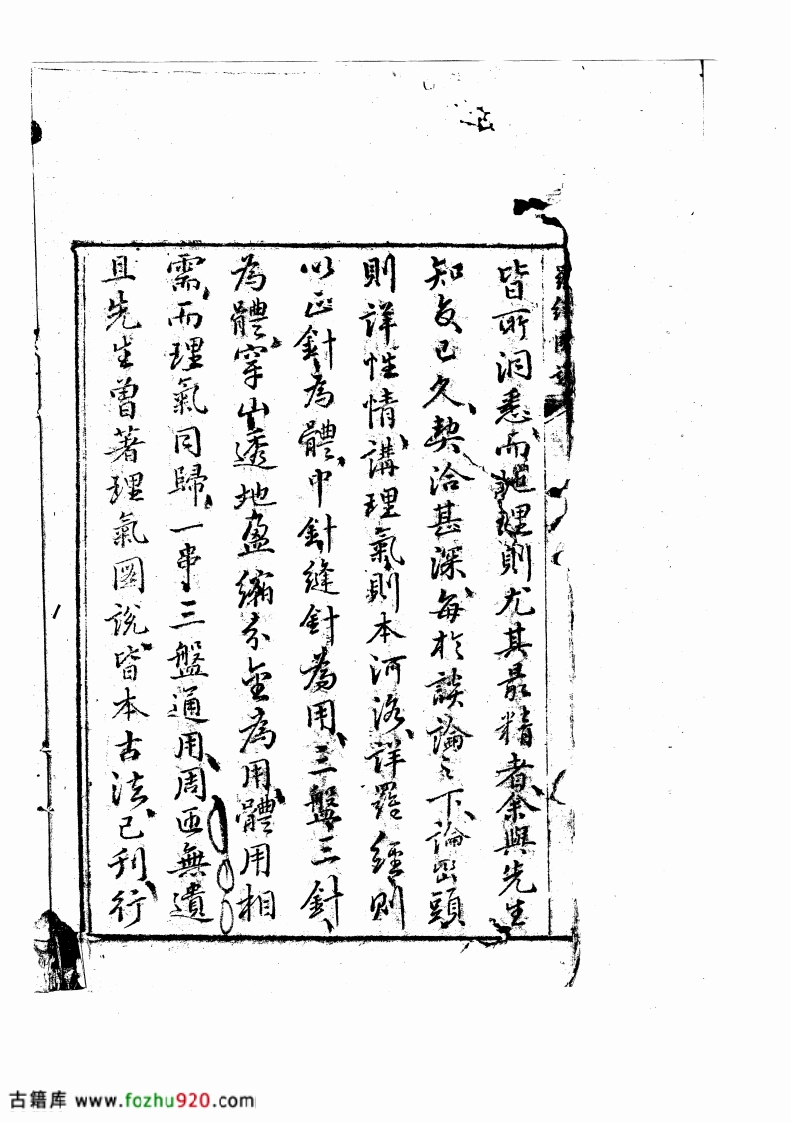 皆所洞悉、而地理則尤其最精者、余與先生
知交已久、契洽甚深、每於談論之下、論巒頭
則詳性情、講理氣則本河洛、詳羅經則
以正針為體、中針縫針為用、三盤三針
為體、穿山透地盈縮分金為用、體用相
需、而理氣同歸一串、三盤通用、周匝無遺
且先生曾著理氣圖說、皆本古法、已刊行
古籍库 www.fozhu920.com